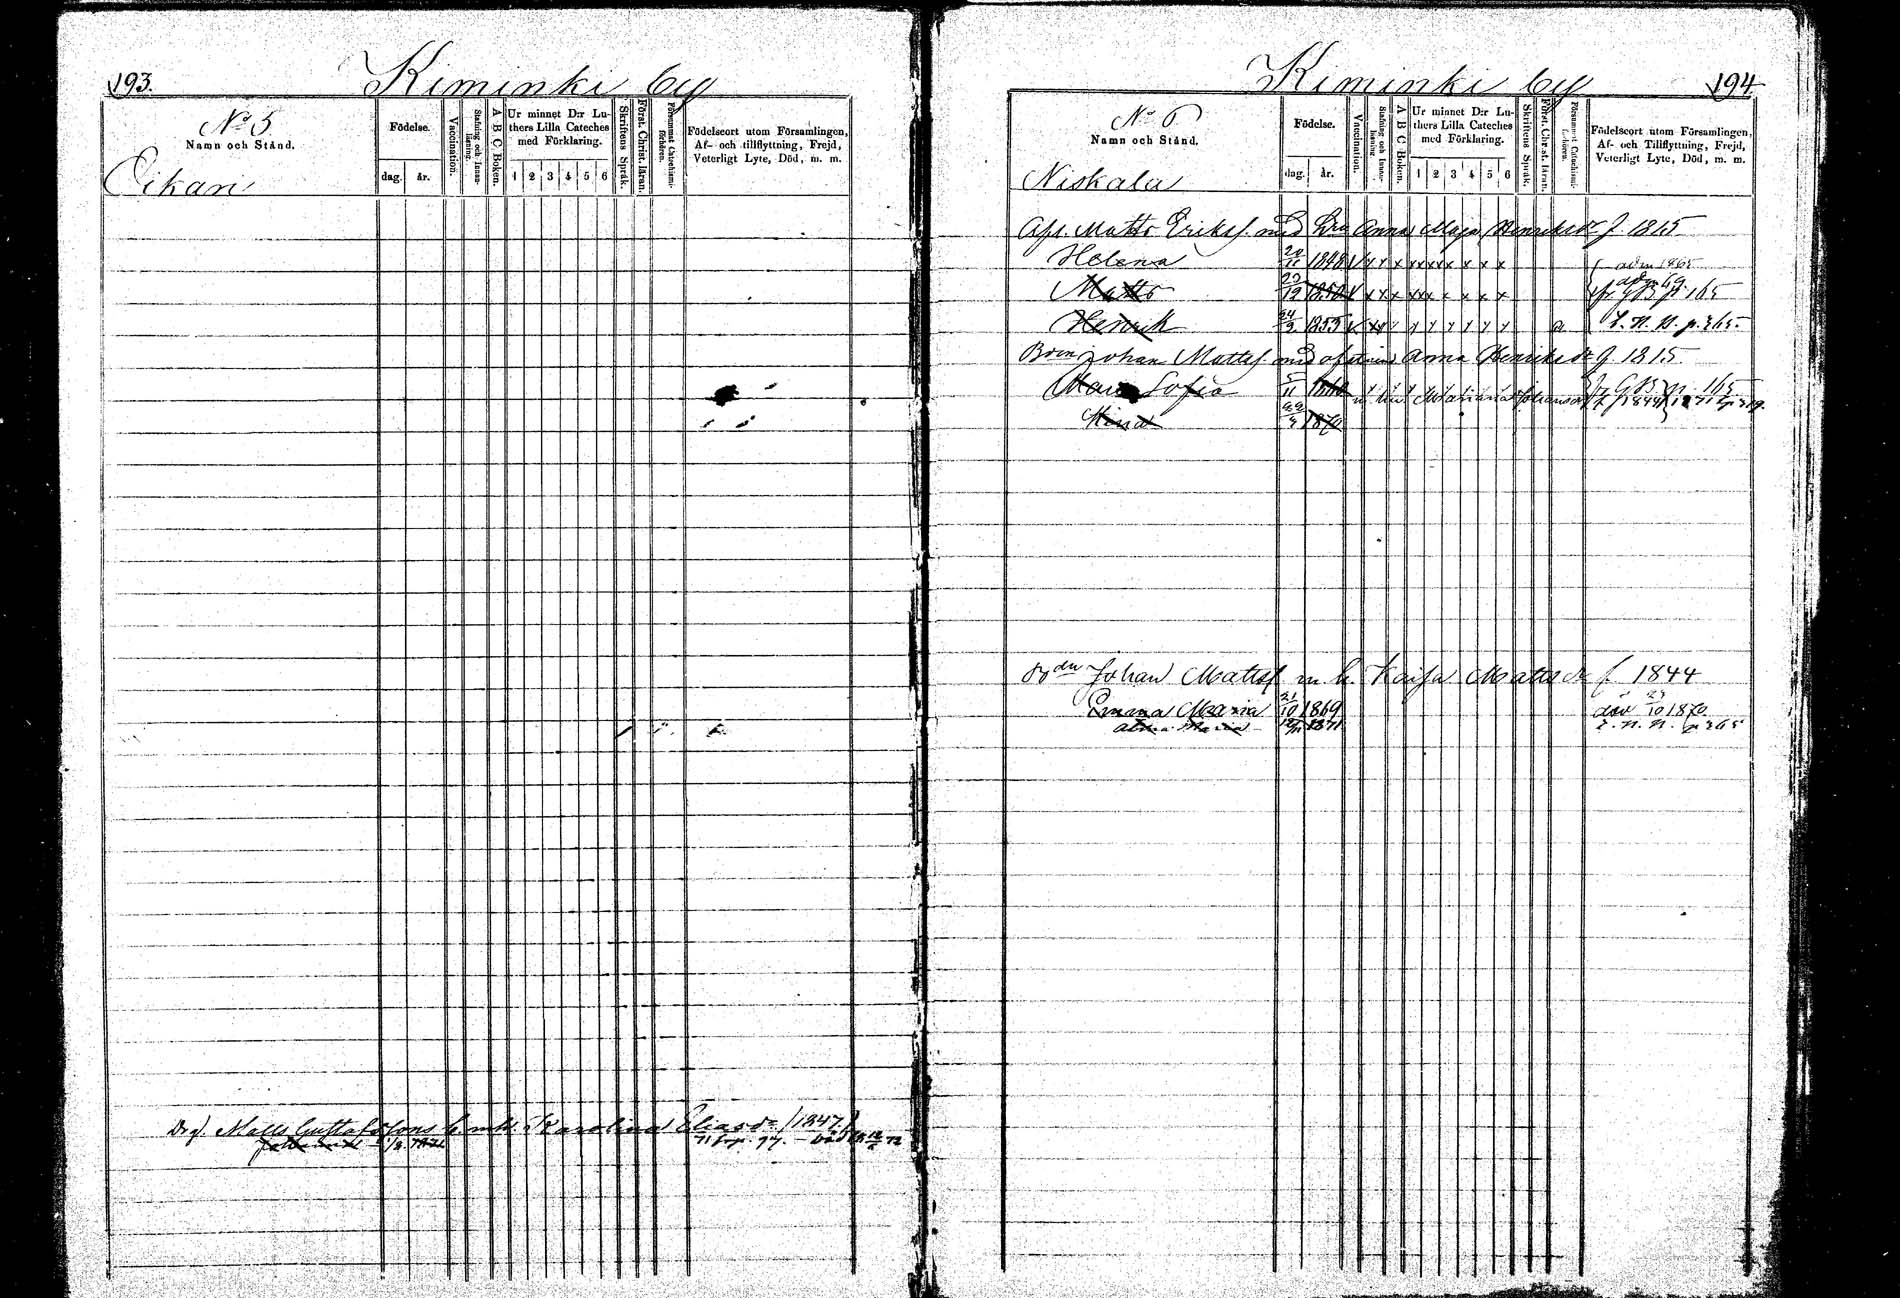 193.
Kiminki by
No 5.
Namn och Stånd.
Födelse.
dag. år.
Vaccination.
Stafning och Innanläsning.
A B C Boken.
Ur minnet D:r Luthers Lilla Cateches med Förklaring.
1 2 3 4 5 6
Skriftens Språk.
Först. Christ. läran.
Försummat Catechismiförhören.
Födelseort utom Församlingen,
Af- och tillflyttning, Frejd,
Veterligt Lyte, Död, m. m.
Oikari
Matts Gustafssons Karolina Eliasdr /1847/
Kiminki by
194
No 6
Namn och Stånd.
Födelse.
dag. år.
Vaccination.
Stafning och Innanläsning.
A B C Boken.
Ur minnet D:r Luthers Lilla Cateches med Förklaring.
1 2 3 4 5 6
Skriftens Språk.
Först. Christ. läran.
Födelseort utom Församlingen,
Af- och Tillflyttning, Frejd,
Veterligt Lyte, Död, m. m.
Niskala
Matts Eriks. med Anna Maja Henriksdr f 1815
Helena 1848 adm 1865
Matts 23/12 1850 p. 165
Henrik 24/9 1855 p. 365.
Johan Matts. med Anna Henriksdr f. 1815.
Maria Sofia 5/11 1860 G B p. 165
Mina 1870
Johan Mattss m. h. Kaisa Mattsdr f 1844
Emma Maria 21/10 1869 död 23/10 1870.
Alma Maria 12/11 1871 p 365